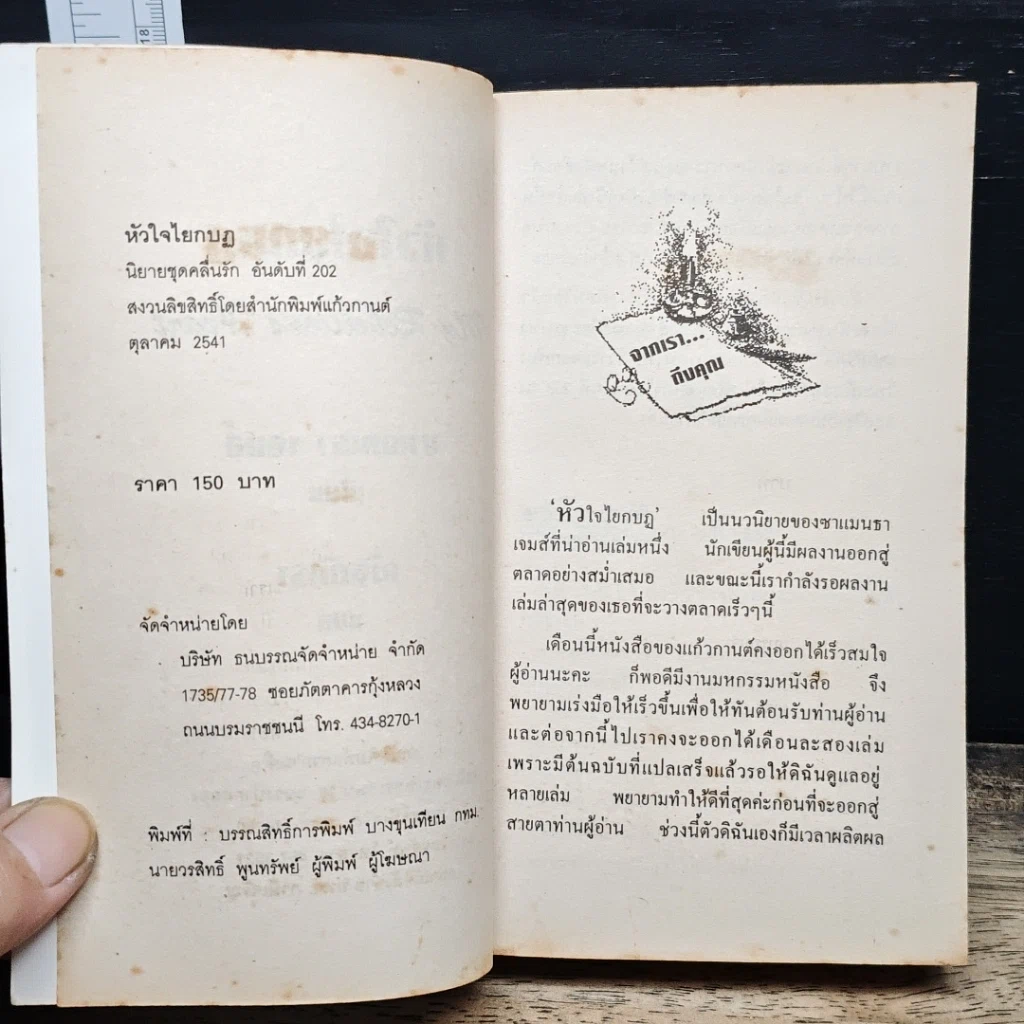 18
หัวใจไยกบฏ
นิยายชุดคลื่นรัก อันดับที่ 202
สงวนลิขสิทธิ์โดยสำนักพิมพ์แก้วกานต์
ตุลาคม 2541
ราคา 150 บาท
จัดจำหน่ายโดย
บริษัท ธนบรรณจัดจำหน่าย จำกัด
1735/77-78 ซอยภัตตาคารกุ้งหลวง
ถนนบรมราชชนนี โทร. 434-8270-1
พิมพ์ที่ : บรรณสิทธิ์การพิมพ์ บางขุนเทียน กทม.
นายวรสิทธิ์ พูนทรัพย์ ผู้พิมพ์ ผู้โฆษณา
จากเรา...
ถึงคุณ
'หัวใจไยกบฏ' เป็นนวนิยายของซาแมนธา
เจมส์ที่น่าอ่านเล่มหนึ่ง นักเขียนผู้นี้มีผลงานออกสู่
ตลาดอย่างสม่ำเสมอ และขณะนี้เรากำลังรอผลงาน
เล่มล่าสุดของเธอที่จะวางตลาดเร็วๆนี้
เดือนนี้หนังสือของแก้วกานต์คงออกได้เร็วสมใจ
ผู้อ่านนะคะ ก็พอดีมีงานมหกรรมหนังสือ จึง
พยายามเร่งมือให้เร็วขึ้นเพื่อให้ทันต้อนรับท่านผู้อ่าน
และต่อจากนี้ไปเราคงจะออกได้เดือนละสองเล่ม
เพราะมีต้นฉบับที่แปลเสร็จแล้วรอให้ดิฉันดูแลอยู่
หลายเล่ม พยายามทำให้ดีที่สุดค่ะก่อนที่จะออกสู่
สายตาท่านผู้อ่าน ช่วงนี้ตัวดิฉันเองก็มีเวลาผลิตผล